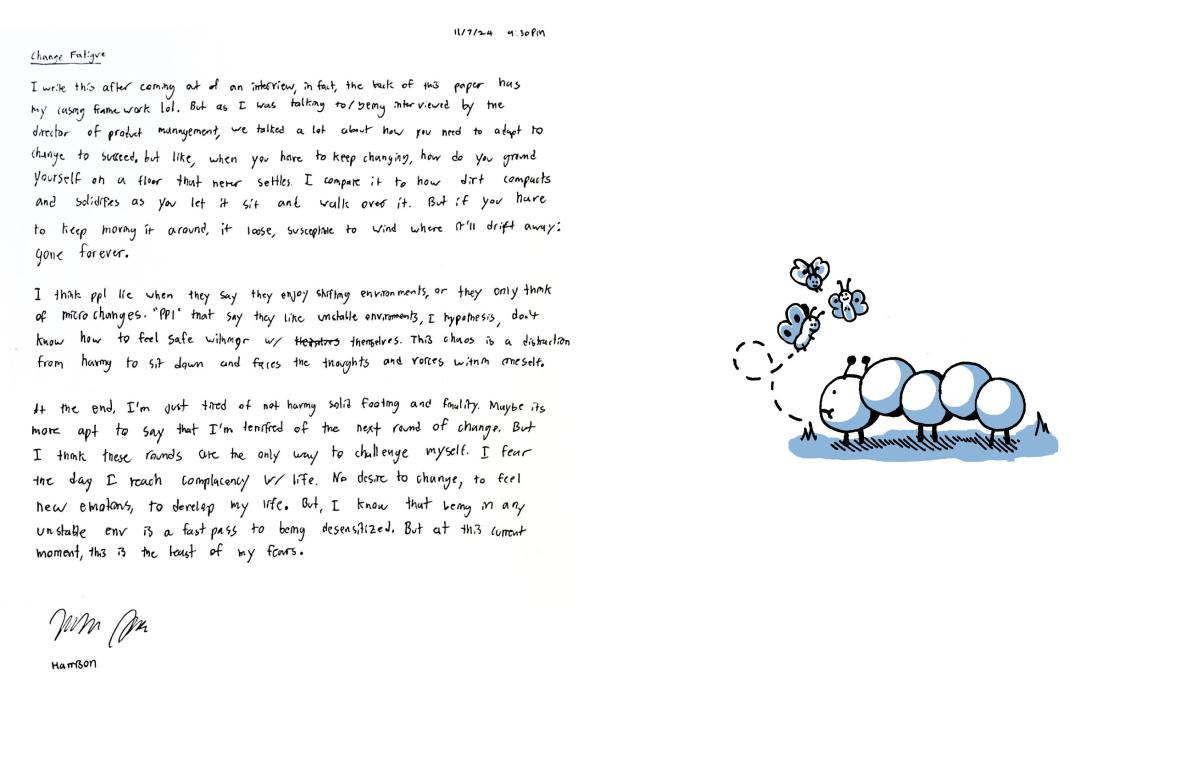 11/7/24 9:30PM
Change Fatigue
I write this after coming out of an interview, in fact, the back of this paper has
my casing frame work lol. But as I was talking to/being interviewed by the
director of product management, we talked a lot about how you need to adapt to
change to succeed, but like, when you have to keep changing, how do you ground
yourself on a floor that never settles. I compare it to how dirt compacts
and solidifies as you let it sit and walk over it. But if you have
to keep moving it around, it loose, susceptible to wind where it'll drift away:
gone forever.
I think ppl lie when they say they enjoy shifting environments, or they only think
of micro changes. "PPl" that say they like unstable enviroments, I hypothesis, don't
know how to feel safe w/ themselves. This chaos is a distraction
from having to sit down and faces the thoughts and voices within oneself.
At the end, I'm just tired of not having solid footing and finality. Maybe its
more apt to say that I'm terrified of the next round of change. But
I think these rounds are the only way to challenge myself. I fear
the day I reach complacency w/ life. No desire to change, to feel
new emotions, to develop my life. But, I know that being in any
unstable env is a fast pass to being desensitized. But at this current
moment, this is the least of my fears.
Harrison